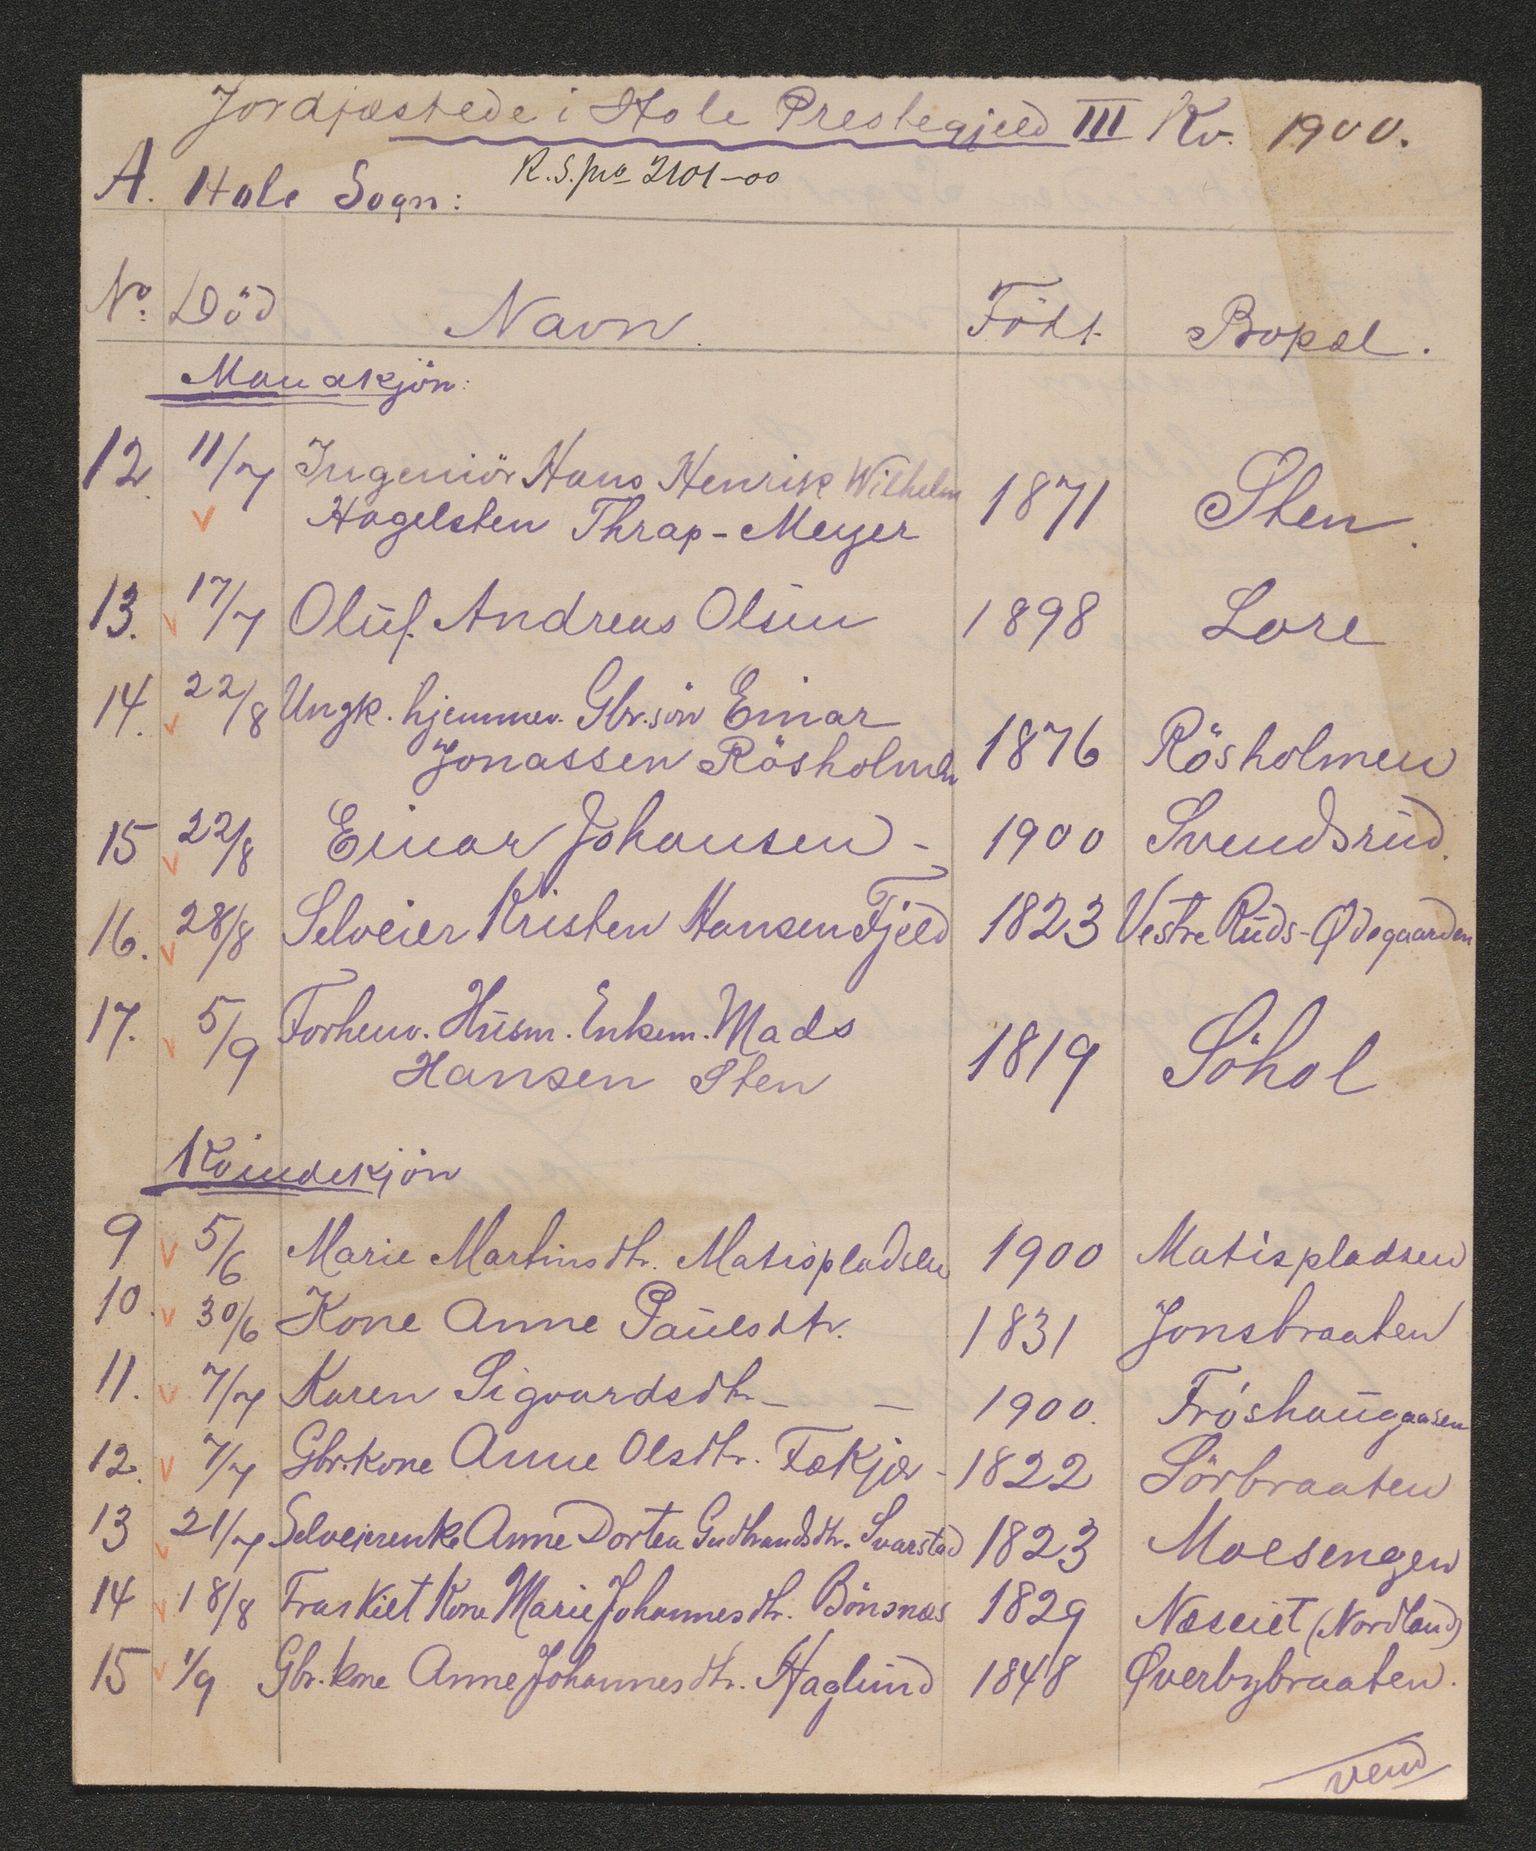 Jordfæstede i Hole Prestegjeld III Kv. 1900.
R.S. pro 2101-00
A. Hole Sogn:
No. Död Navn. Födt Bopæl.
Mandkjön:
12. 11/7 Ingeniör Hans Henrik Wilhelm
Hagelsten Thrap-Meyer 1871 Sten.
13. 17/7 Oluf Andreas Olsen 1898 Lore
14. 22/8 Ungk. hjemmev. Gbr.sön Einar
Jonassen Rösholmen 1876 Rösholmen
15 22/8 Einar Johansen - 1900 Svendsrud.
16. 28/8 Selveier Kristen Hansen Fjeld 1823 Vestre Ruds-Ødegaarden
17. 5/9 Forhenv. Husm. Enkem. Mads
Hansen Sten 1819 Söhol
Kvindekjön
9 5/6 Marie Martinsdtr. Matispladsen 1900 Matispladsen
10. 30/6 Kone Anne Paulsdtr. 1831 Jonsbraaten
11. 7/7 Karen Sigvardsdtr - - 1900. Fröshaugaasen
12. 7/7 Gbr.kone Anne Olsdtr. Fækjær - 1822 Sörbraaten
13 21/7 Selveierenke Anne Dortea Gudbrandsdtr. Svarstad 1823 Moesengen
14 18/8 Fraskilt Kone Marie Johannesdtr. Bönsnæs 1829 Næseiet (Nordland)
15 1/9 Gbr.kone Anne Johannesdtr. Haglund 1848 Øverbybraaten.
vend